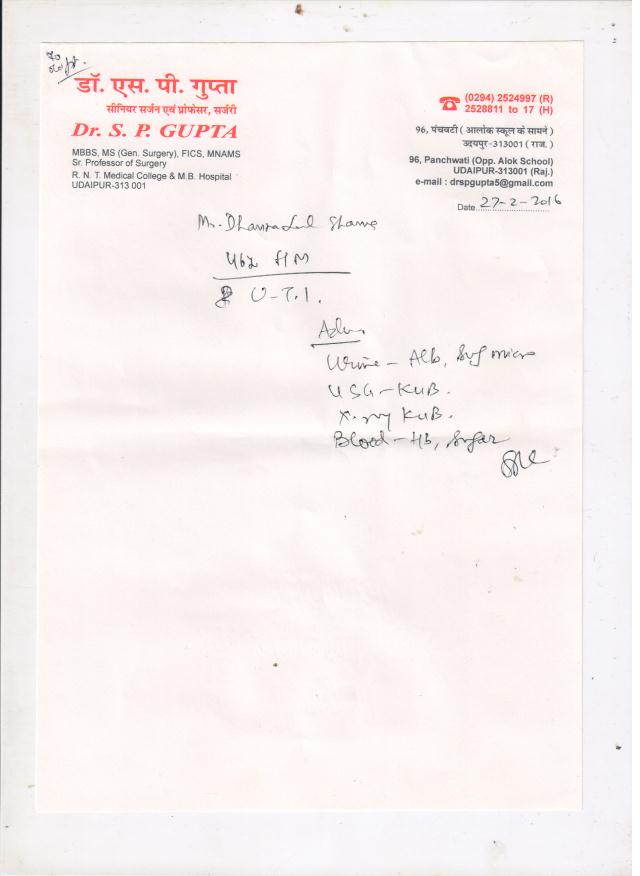 डॉ. एस. पी. गुप्ता
सीनियर सर्जन एवं प्रोफेसर, सर्जरी
Dr. S. P. GUPTA
MBBS, MS (Gen. Surgery), FICS, MNAMS
Sr. Professor of Surgery
R. N. T. Medical College & M.B. Hospital
UDAIPUR-313 001
(0294) 2524997 (R)
2528811 to 17 (H)
96, पंचवटी ( आलोक स्कूल के सामने )
उदयपुर-313001 ( राज. )
96, Panchwati (Opp. Alok School)
UDAIPUR-313001 (Raj.)
e-mail : drspgupta5@gmail.com
Date 27-2-2016
Mr. Sharma
U.T.I.
Urine - Alb, Sug micro
USG - KUB.
X-ray KUB.
Blood - Hb, Sugar